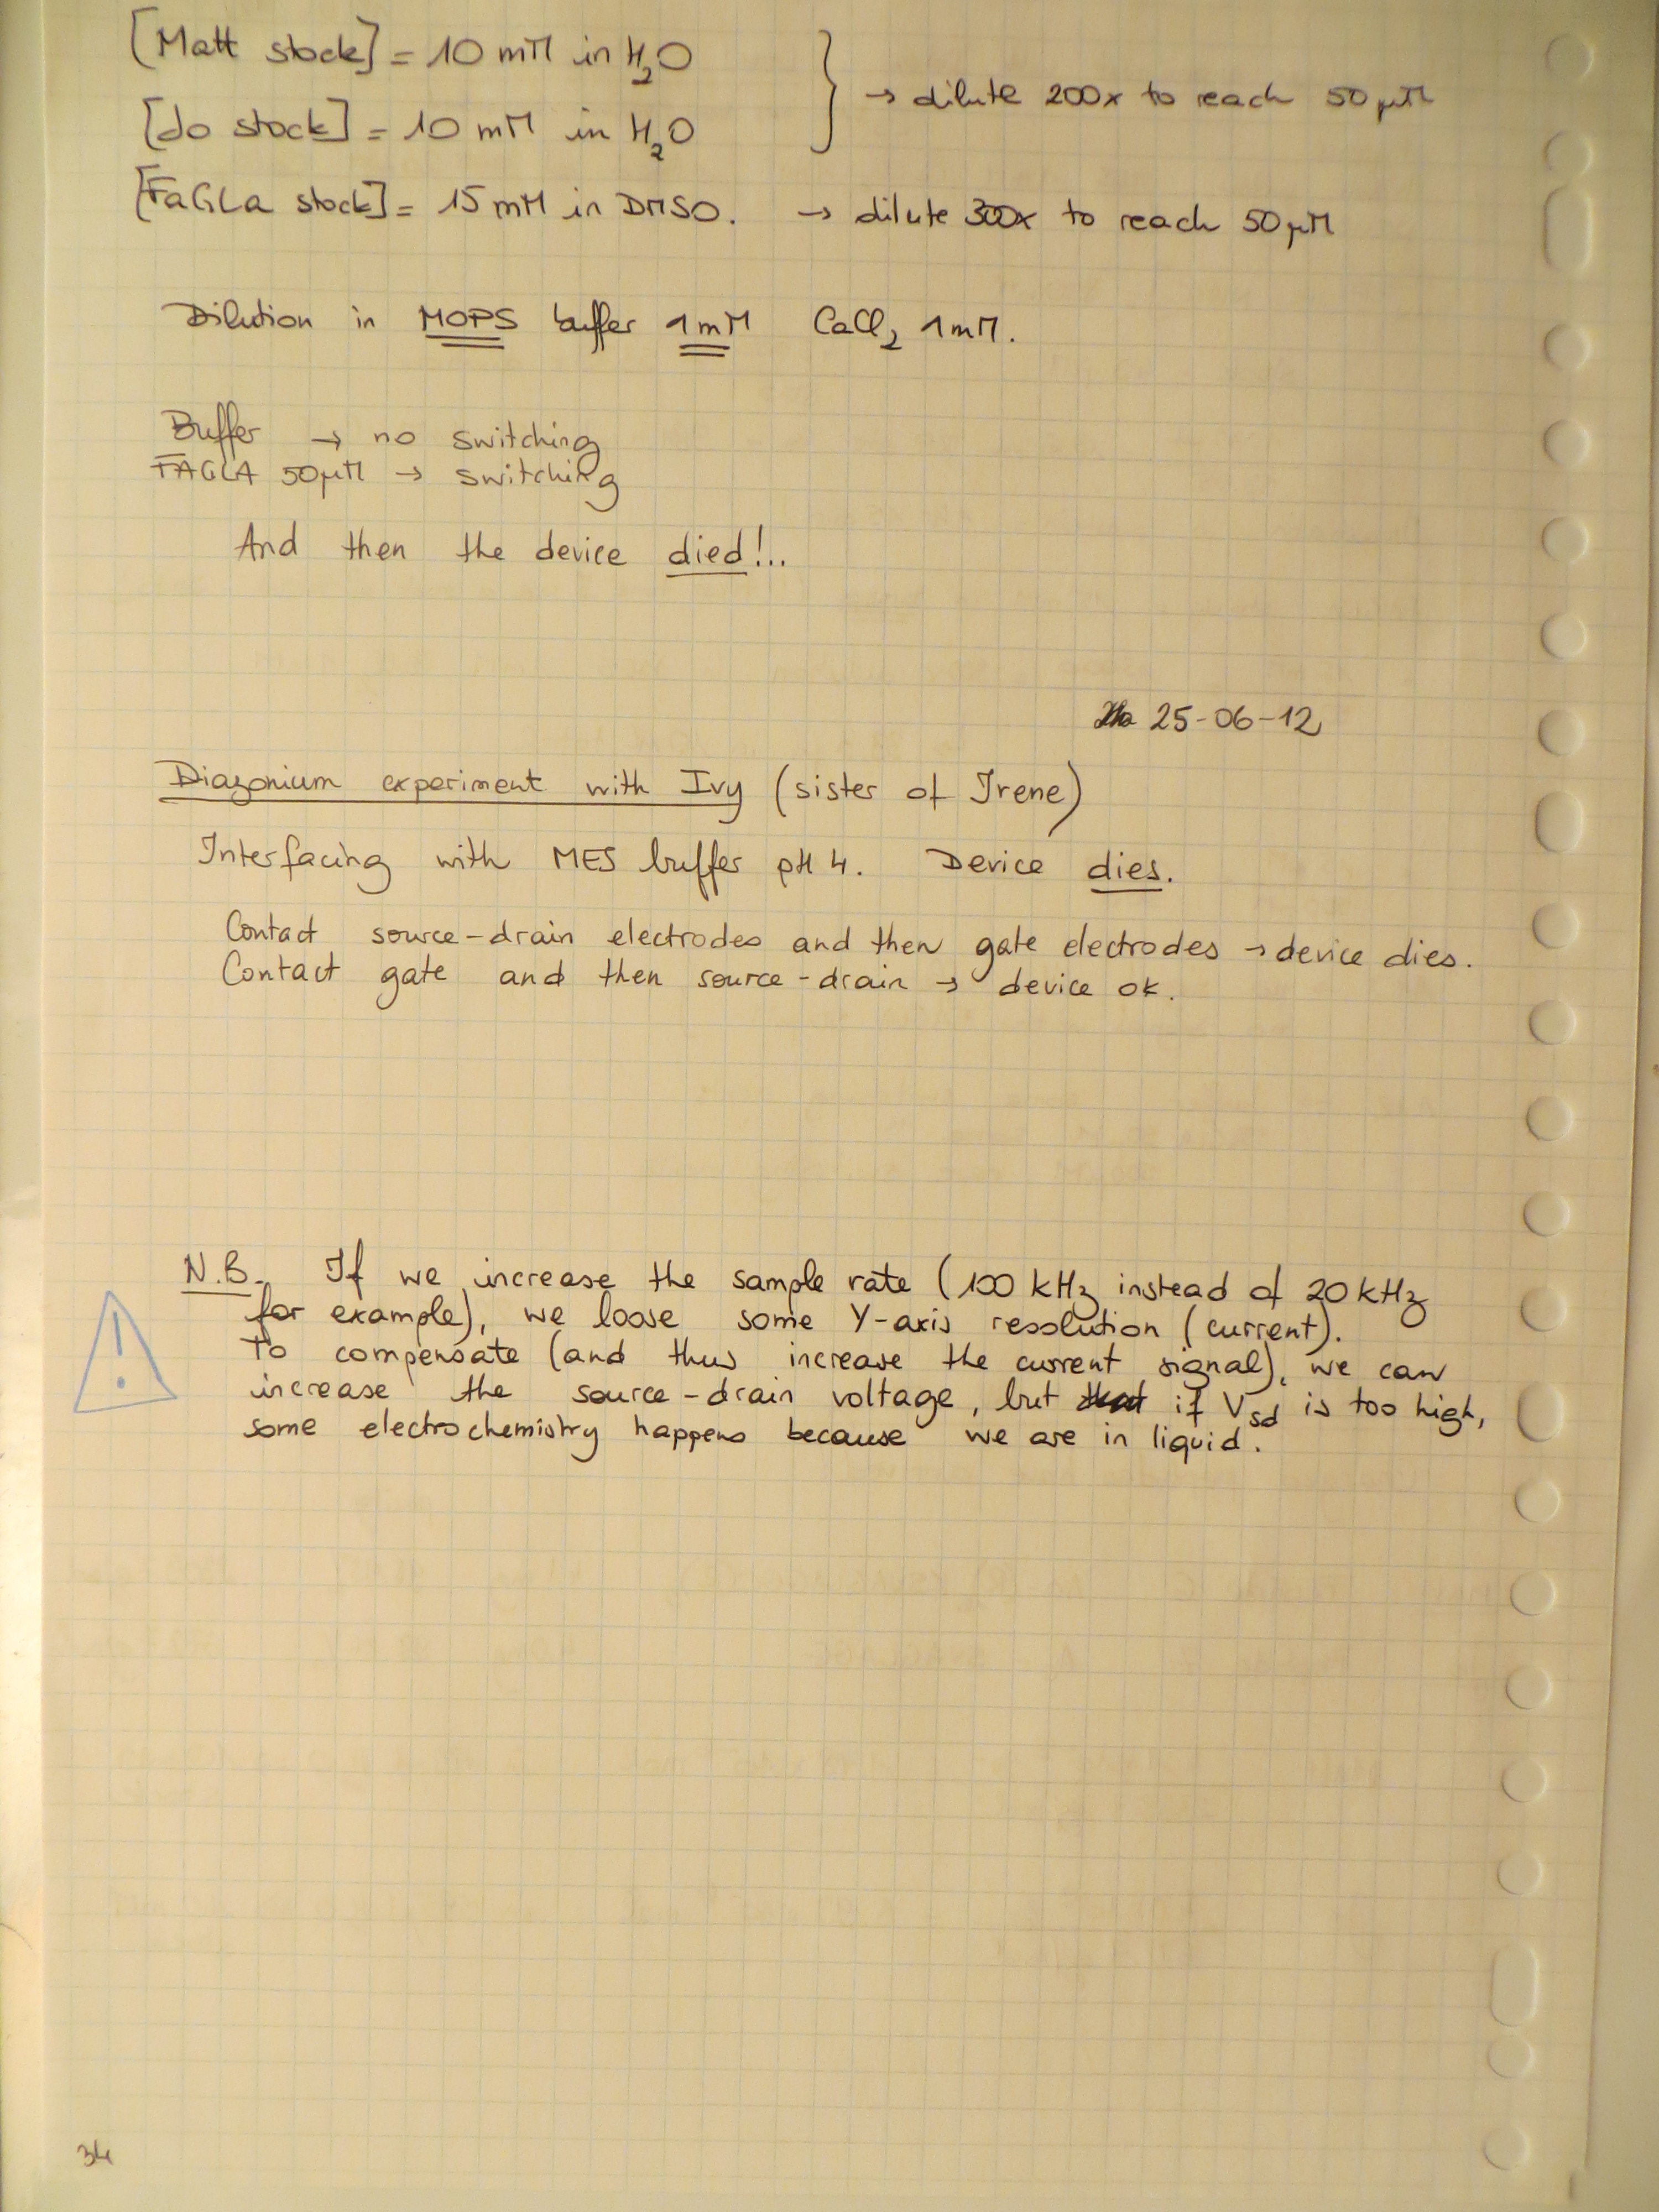 [Matt stock] = 10 mM in H₂O
} → dilute 200x to reach 50 µM
[Jo stock] = 10 mM in H₂O
[FaGLa stock] = 15 mM in DMSO. → dilute 300x to reach 50 µM
Dilution in MOPS buffer 1 mM CaCl₂ 1 mM.
Buffer → no switching
FAGLA 50 µM → switching
And then the device died!...
25-06-12
Diazonium experiment with Ivy (sister of Irene)
Interfacing with MES buffer pH 4. Device dies.
Contact source-drain electrodes and then gate electrodes → device dies.
Contact gate and then source-drain → device ok.
N.B. If we increase the sample rate (100 kHz instead of 20 kHz
for example), we loose some Y-axis resolution (current).
To compensate (and thus increase the current signal), we can
increase the source-drain voltage, but if Vsd is too high,
some electrochemistry happens because we are in liquid.
!
34